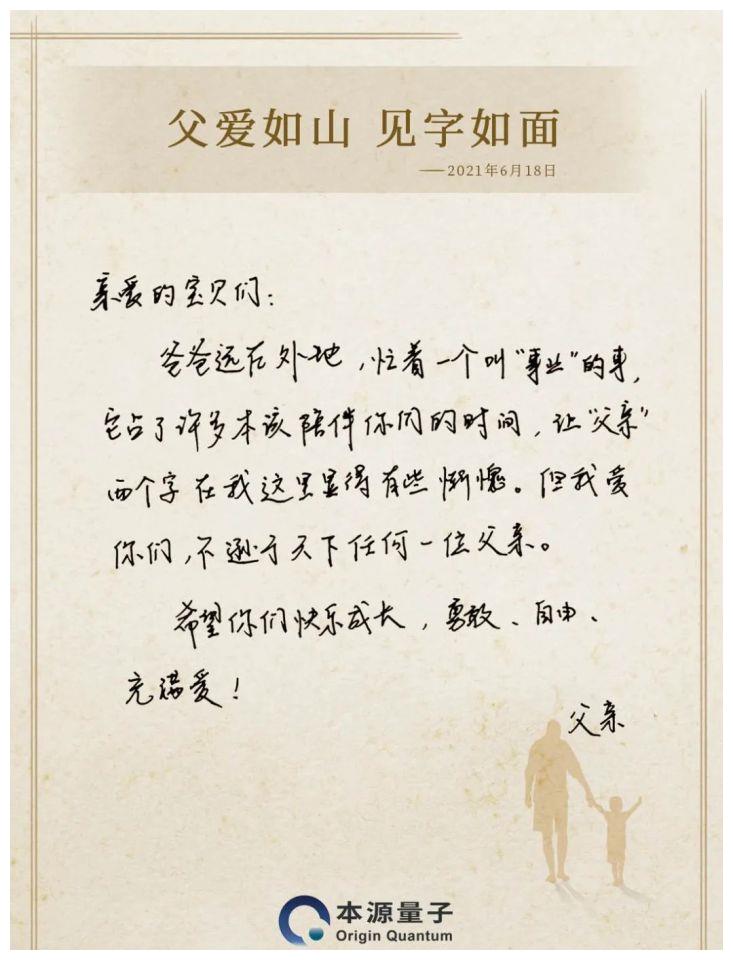 父爱如山 见字如面
——2021年6月18日
亲爱的宝贝们：
爸爸远在外地，忙着一个叫“事业”的事，
它占了许多本该陪伴你们的时间，让“父亲”
两个字在我这里显得有些惭愧。但我爱
你们，不逊于天下任何一位父亲。
希望你们快乐成长，勇敢、自由、
充满爱！
父亲
本源量子
Origin Quantum